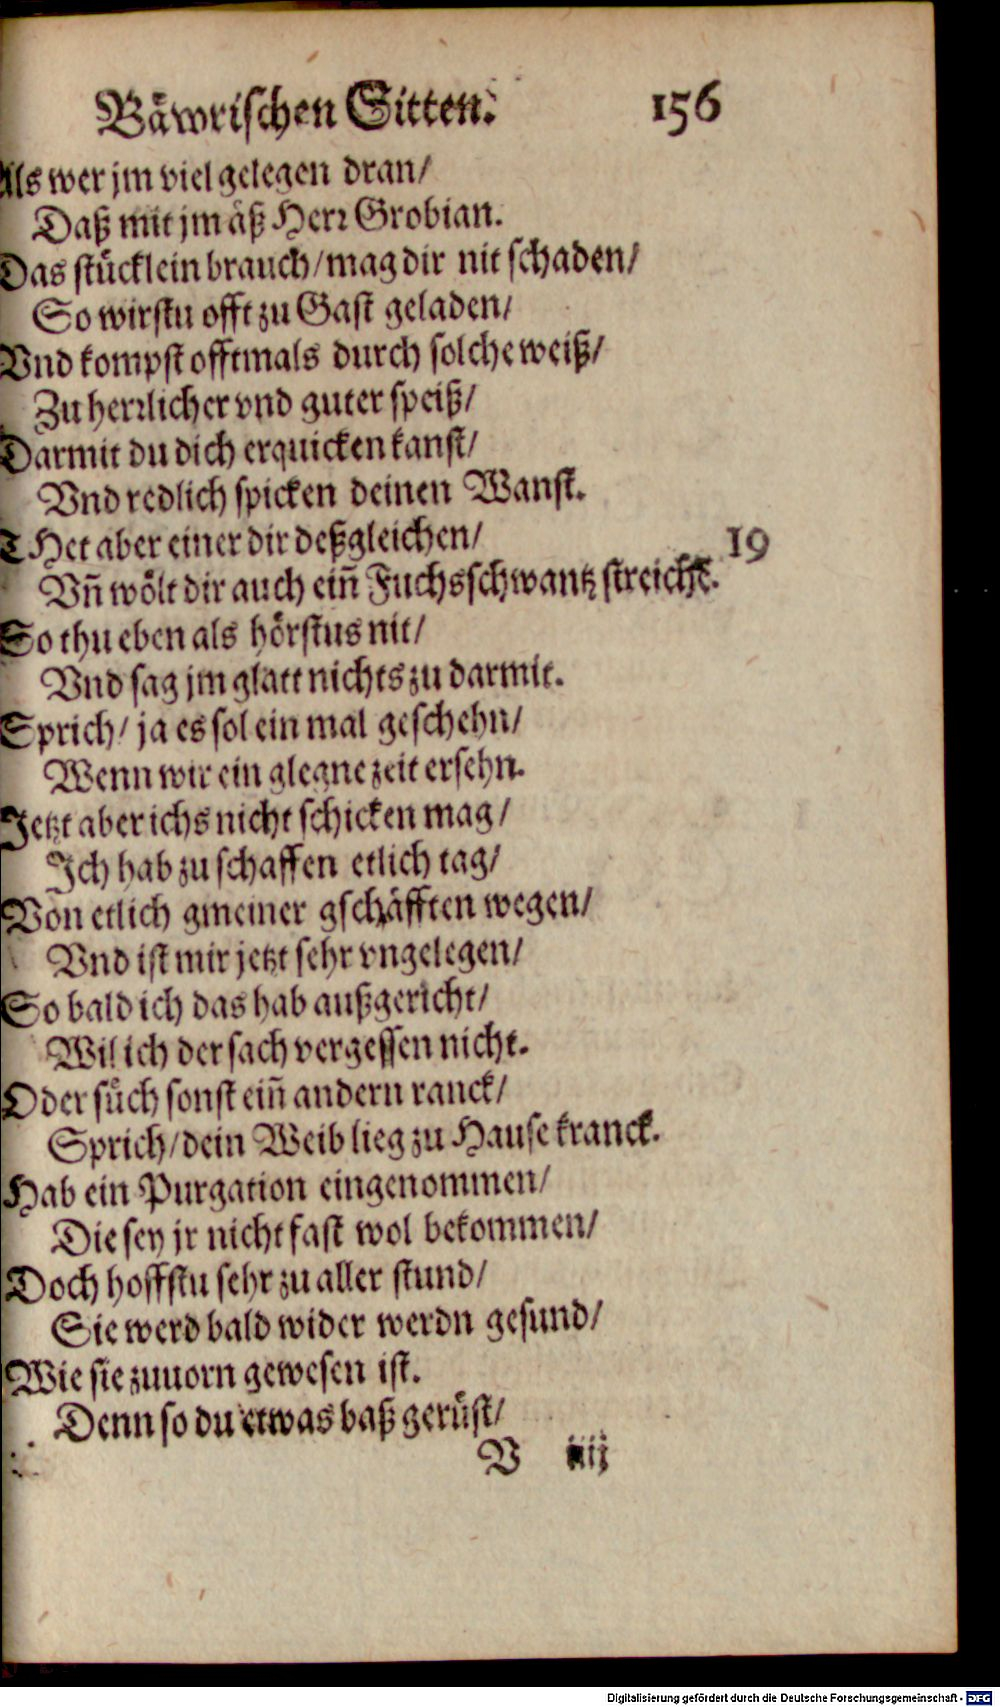 Bäwrischen Sitten. 156
Als wer jm viel gelegen dran/
Daß mit jm äß Herr Grobian.
Das stücklein brauch/mag dir nit schaden/
So wirstu offt zu Gast geladen/
Vnd kompst offtmals durch solche weiß/
Zu herrlicher vnd guter speiß/
Darmit du dich erquicken kanst/
Vnd redlich spicken deinen Wanst.
THet aber einer dir deßgleichen/ 19
Vn̄ wölt dir auch ein̄ Fuchsschwantz streichē.
So thu eben als hörstus nit/
Vnd sag jm glatt nichts zu darmit.
Sprich/ ja es sol ein mal geschehn/
Wenn wir ein glegne zeit ersehn.
Jetzt aber ichs nicht schicken mag/
Ich hab zu schaffen etlich tag/
Von etlich gmeiner gschäfften wegen/
Vnd ist mir jetzt sehr vngelegen/
So bald ich das hab außgericht/
Wil ich der sach vergessen nicht.
Oder such sonst ein̄ andern ranck/
Sprich/dein Weib lieg zu Hause kranck.
Hab ein Purgation eingenommen/
Die sey jr nicht fast wol bekommen/
Doch hoffstu sehr zu aller stund/
Sie werd bald wider werdn gesund/
Wie sie zuuorn gewesen ist.
Denn so du etwas baß gerüst/
V iiij
Digitalisierung gefördert durch die Deutsche Forschungsgemeinschaft - DFG